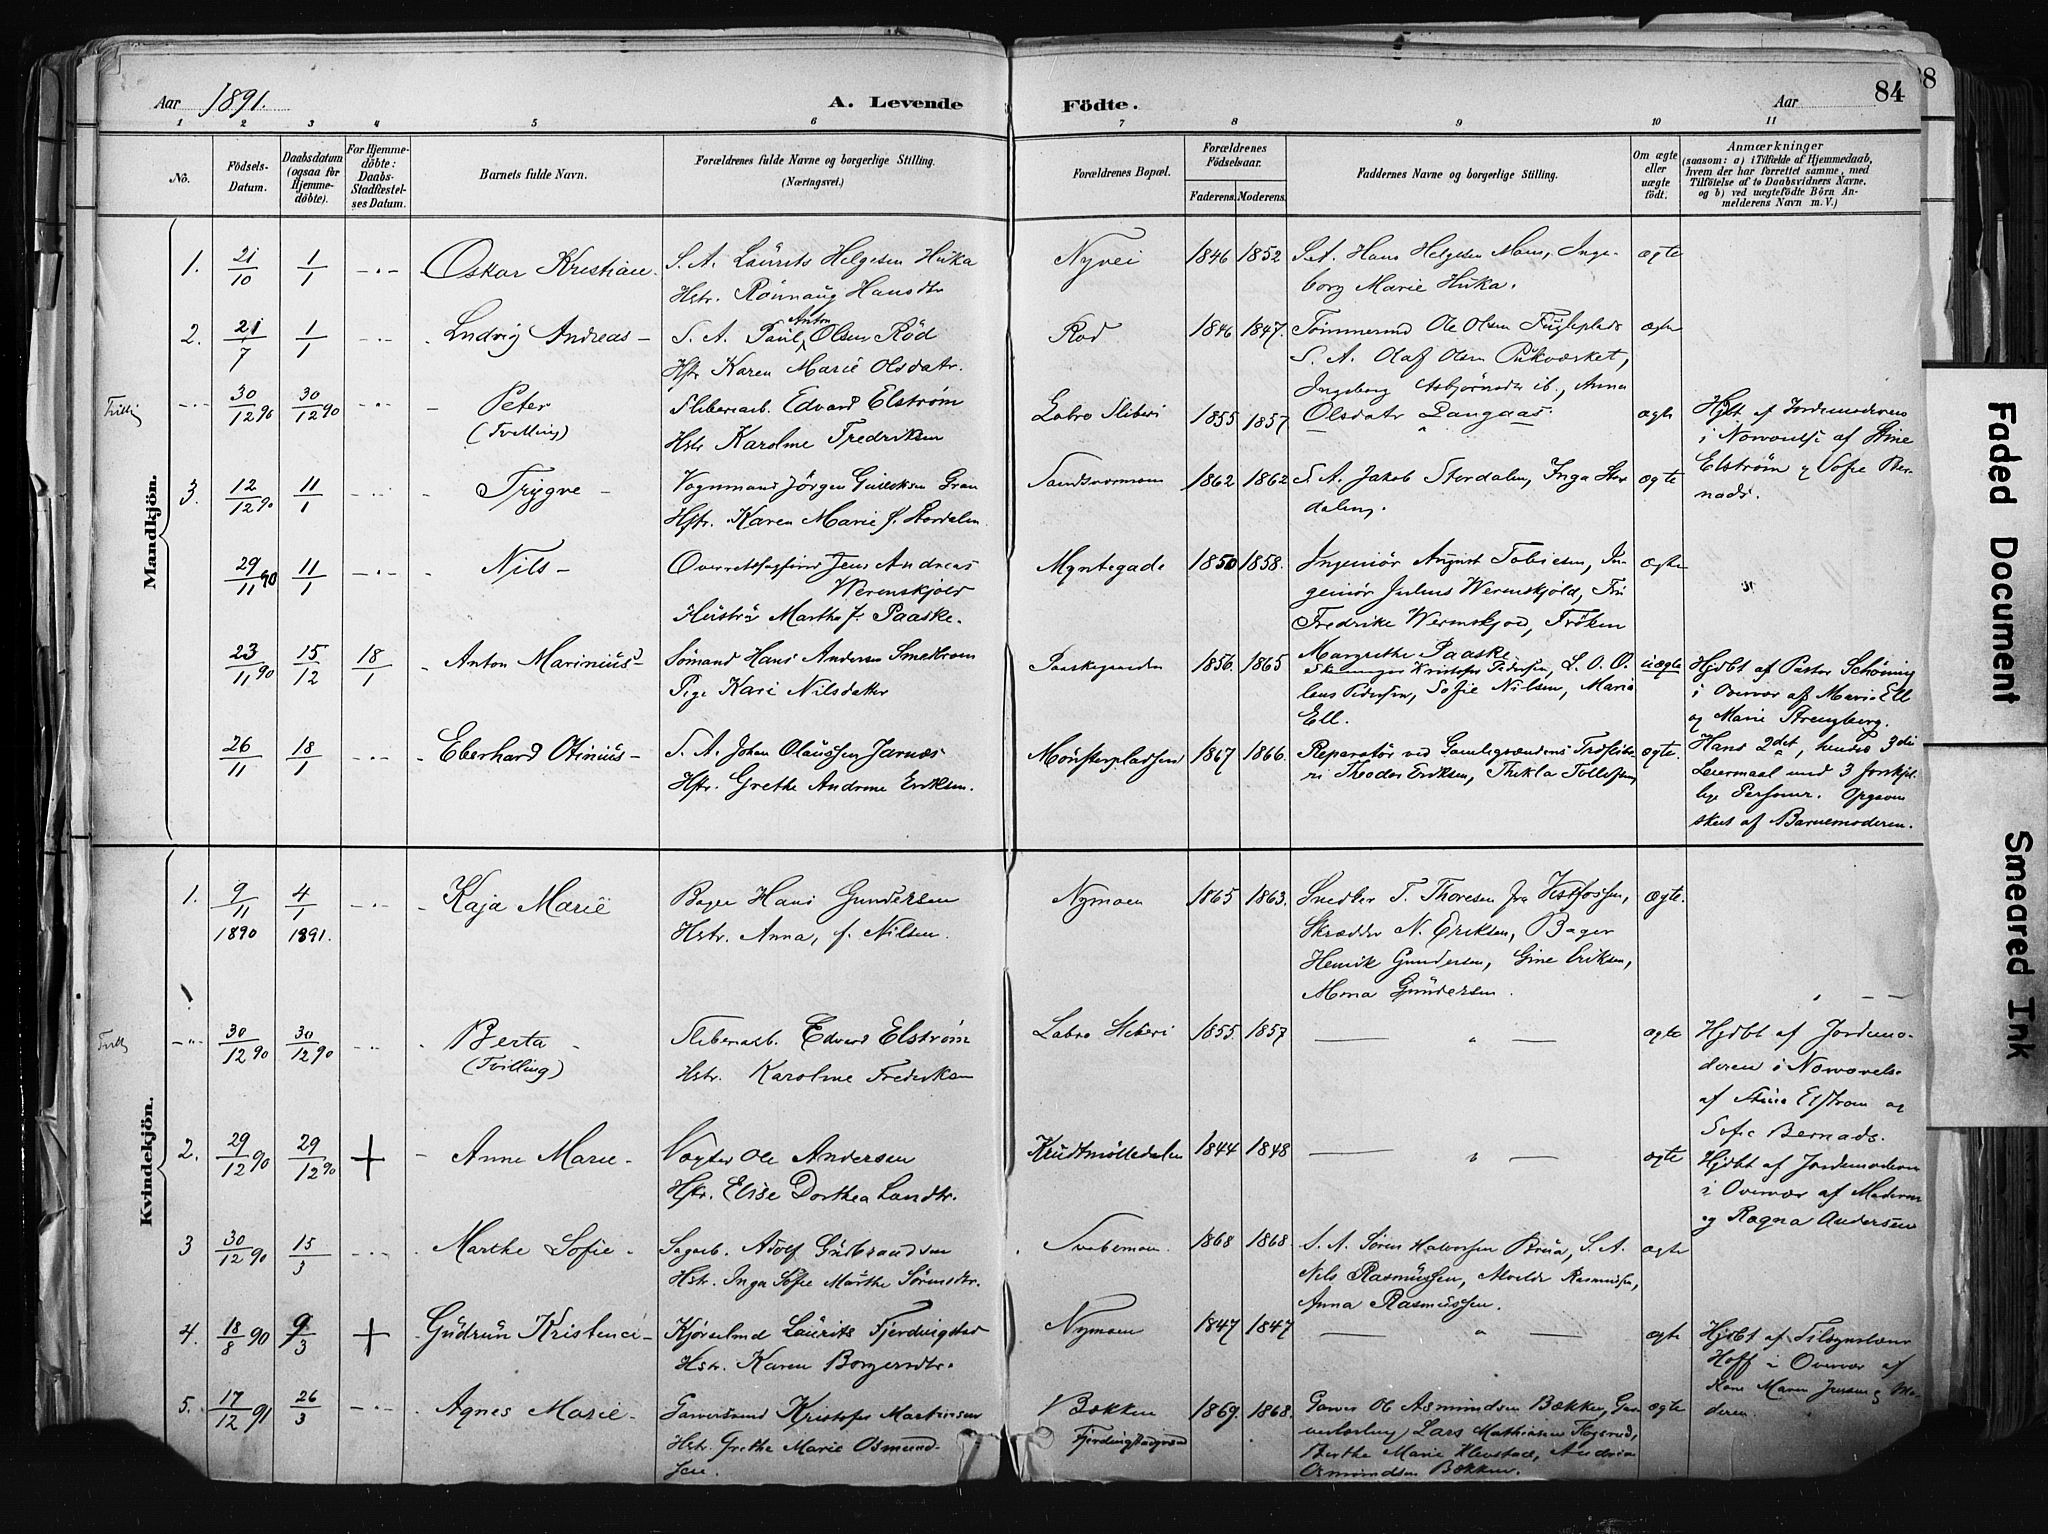 Aar 1891.
A. Levende
Födte.
Aar
84
88
1 2 3 4 5 6 7 8 9 10 11
No.
Födsels-
Datum.
Daabsdatum
(ogsaa for
Hjemme-
döbte).
For Hjemme-
döbte:
Daabs-
Stadfæstel-
ses Datum.
Barnets fulde Navn.
Forældrenes fulde Navne og borgerlige Stilling.
(Næringsvei.)
Forældrenes Bopæl.
Forældrenes
Födselsaar.
Faderens.
Moderens.
Faddernes Navne og borgerlige Stilling.
Om ægte
eller
uægte
født.
Anmærkninger
(saasom: a) i Tilfælde af Hjemmedaab,
hvem der har forrettet samme, med
Tilföielse af to Daabsvidners Navne,
og b) ved uægtefödte Börn An-
melderens Navn m. V.)
Mandkjön.
1. 21/10 1/1 Oskar Kristian
S. A. Laurits Helgesen Huka
Hstr. Rönnaug Hansdtr
Nyvei 1846 1852
S. A. Hans Helgesen Moen, Inge-
borg Marie Huka.
ægte
2. 21/7 1/1 Ludvig Andreas
Anton
S. A. Paul Olsen Röd
Hstr. Karen Marie Olsdatr.
Rød 1846 1847.
Tømmermd Ole Olsen Fugleplads
S. A. Olaf Olsen Pukværket,
Ingeborg Asbjörnsdtr ib., Anna
Olsdatr Langaas
ægte
Tvilling
30/12 90 30/12 90 Peter
(Tvilling)
Sliberiarb. Edvard Elström
Hstr. Karoline Fredriksen
Labro Sliberi 1855 1857
ægte
Hjdbt af Jordemoderen
i Nærværelse af Stine
Elström & Sofie Ber-
nads.
3. 12/12 90 11/1 Trygve
Vognmand Jörgen Gran
Hstr. Karen Marie f. Stordalen
Sandsværmoen 1862 1862
S. A. Jakob Stordalen, Inga Stor-
dalen.
ægte
29/11 90 11/1 Nils
Overretssagfører Jens Andreas
Werenskjold
Hustru Marthe f. Paaske.
Myntegade 1850 1858.
Ingeniör August Tobiesen, In-
geniör Julius Werenskjold, Fru
Fredrikke Werenskjold, Fröken
Margrethe Paaske
ægte
23/11 90 15/12 18/1 Anton Marinius
Sömand Hans Andersen
Pige Kari Nilsdatter
Paaskegaarden 1856. 1865
Kristofer Pedersen, L. O. O.
Pedersen, Sofie Nilsen, Maria
Ell.
uægte
Hjdbt af Pastor Schöning
i Overvær af Maria Ell
og Marie Strengberg.
Hans 2det, hendes 3die
Leiermaal med 3 forskjel-
lige Personer. Opgivet
skrift af Barnemoderen.
26/11 18/1 Eberhard Otinius
S. A. Johan Olaussen Jarnæs
Hstr. Grethe Andrine Eriksen.
Mönsterpladsen 1867 1866.
Reparatör ved Gamlegrændens Træsliberi
Theodor Eriksen, Thekla Tollefsen,
ægte.
Kvindekjön.
1. 9/11 1890 4/1 1891. Kaja Marie
Bager Hans Gundersen
Hstr. Anna, f. Nilsen.
Nymoen 1865 1863.
Snedker T. Thoresen fra Vestfossen,
Skrædder N. Eriksen, Bager
Henrik Gundersen, Gine Eriksen,
Mona Gundersen.
ægte.
Tvill
30/12 90 30/12 90 Berta
(Tvilling)
Sliberiarb. Edvard Elström
Hstr. Karoline Fredriksen
Labro Sliberi 1855. 1857
ægte
Hjdbt af Jordemo-
deren i Nærværelse
af Stine Elström og
Sofie Bernads.
2. 29/12 90 29/12 90 + Anne Marie
Vogter Ole Andersen
Hstr. Elise Dorthea Landtr.
Krudtmölledalen 1844 1848
ægte
Hjdbt af Jordemoderen
i Overvær af Moderen
og Ragna Andersen
3 30/12 90 15/3 Marthe Sofie
Sagarb. Adolf Gulbrandsen
Hstr. Inga Sofie Marthe Sörensdtr.
Svabemoen. 1868 1868.
S. A. Sören Halvorsen Brua, S. A.
Nils Rasmussen, Alvilde Rasmussen,
Anna Rasmussen.
ægte
4. 18/8 90 9/3 + Gudrun Kristenci
Kjörselmd Laurits Fjerdingstad
Hstr. Karen Borgersdtr.
Nymoen 1847 1847
ægte
Hjdbt af
Hoff i Overvær af
Kone Maren Jensen & Mo-
deren.
5. 17/12 91 26/3 Agnes Marie
Garversvend Kristofer Martinsen
Hstr. Grethe Marie Osmund-
sen
Bækken
1869. 1868.
Garver Ole Asmundsen Bækken,
Lars Mathisen
Berthe Marie
Osmundsen Bækken.
ægte
Faded Document
Smeared Ink